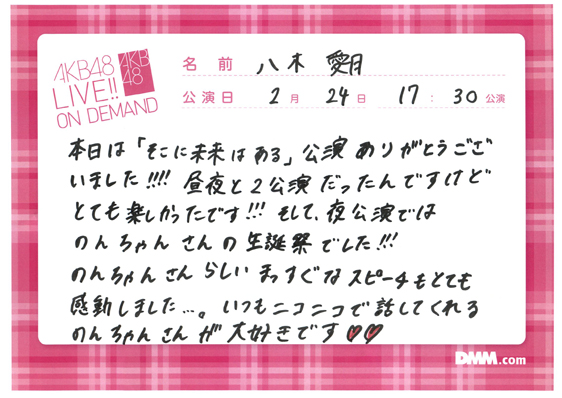 AKB48
LIVE!!
ON DEMAND
AKB
48
名前 八木 愛月
公演日 2月 24日 17:30公演
本日は「そこに未来はある」公演ありがとうござ
いました!!!! 昼夜と2公演だったんですけど
とても楽しかったです!!! そして、夜公演では
のんちゃんさんの生誕祭でした!!!
のんちゃんさんらしいまっすぐなスピーチもとても
感動しました…。いつもニコニコで話してくれる
のんちゃんさんが大好きです♡♡
DMM.com